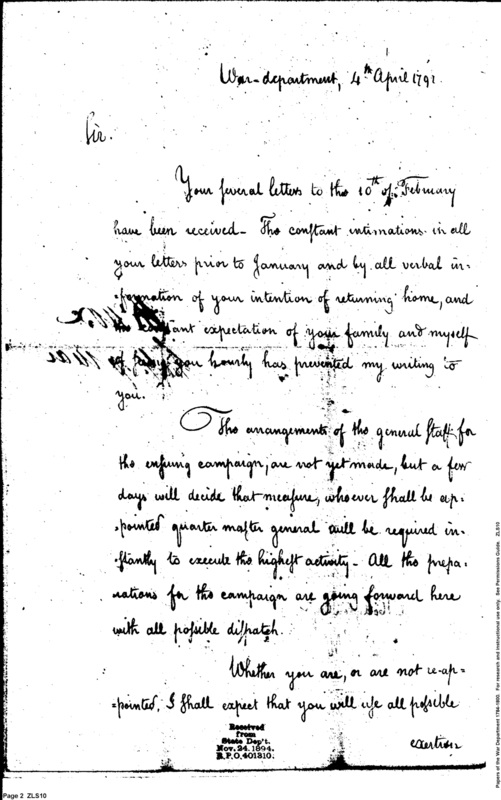 War-department, 4th April 1792
Sir.
Your several letters to the 10th of February
have been received- The constant intimations in all
your letters prior to January and by all verbal in-
=formation of your intention of returning home, and
the constant expectation of your family and myself
of you hourly has prevented my writing to
you.
The arrangements of the general Staff for
the ensuing campaign, are not yet made, but a few
days will decide that measure, whoever shall be ap-
=pointed quarter master general will be required in-
=stantly to execute the highest activity- All the prepa-
=rations for the campaign are going forward here
with all possible dispatch.
Whether you are, or are not re-ap-
=pointed, I shall expect that you will use all possible
exertion
Received
from
State Dep't.
Nov. 24. 1894.
R.P.O. 401310.
Page 2 ZLS10
Papers of the War Department 1784-1800. For research and instructional use only. See Permissions Guide. ZLS10